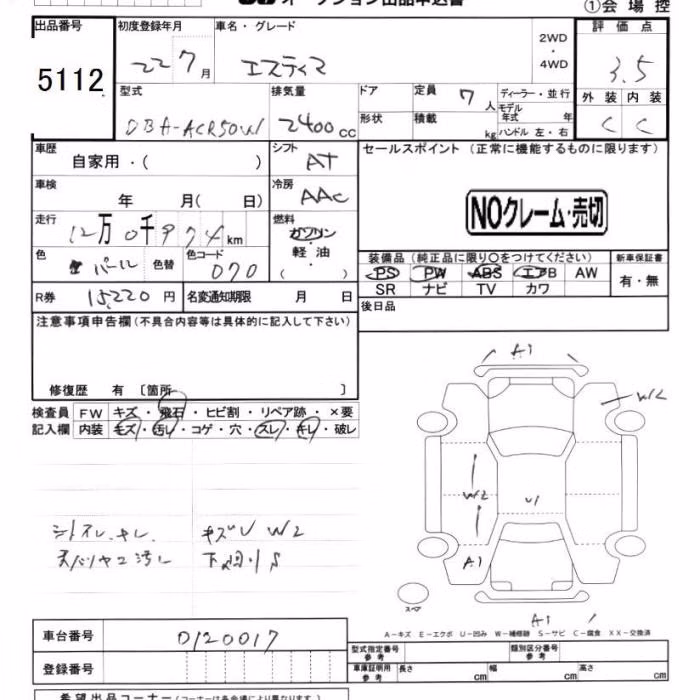 オークション出品申込書
①会場控
出品番号 5112
初度登録年月 22 7月
車名・グレード エスティマ
2WD・4WD
評価点 3.5
外装 内装
C C
型式 DBA-ACR50W
排気量 2400cc
ドア
形状
定員 7人
積載 kg
ディーラー・並行
モデル年式 年
ハンドル 左・右
車歴 自家用・( )
シフト AT
セールスポイント (正常に機能するものに限ります)
車検 年 月( 日)
冷房 AAC
NOクレーム・売切
走行 12万0千974km
燃料 ガソリン 軽油 ( )
色 パール 色替
色コード 070
装備品 (純正品に限り○をつけてください)
新車保証書
PS PW ABS エアB AW
有・無
SR ナビ TV カワ
R券 15220円
名変通知期限 月 日
後日品
注意事項申告欄 (不具合内容等は具体的に記入して下さい)
修復歴 有 〔箇所 〕
検査員記入欄
FW キズ・飛石・ヒビ割・リペア跡・×要
内装 キズ・汚レ・コゲ・穴・スレ・キレ・破レ
A1
W2
W2
U1
A1
スペア
A1
シートスレ.キレ キズU W2
天バリヤニ汚レ 下回りS
A-キズ E-エクボ U-凹み W-補修跡 S-サビ C-腐食 XX-交換済
車台番号 0120017
型式指定番号 参考
類別区分番号 参考
登録番号
車庫証明用 参考
長さ cm
幅 cm
高さ cm
希望出品コーナー (コーナーは各会場により異なります)